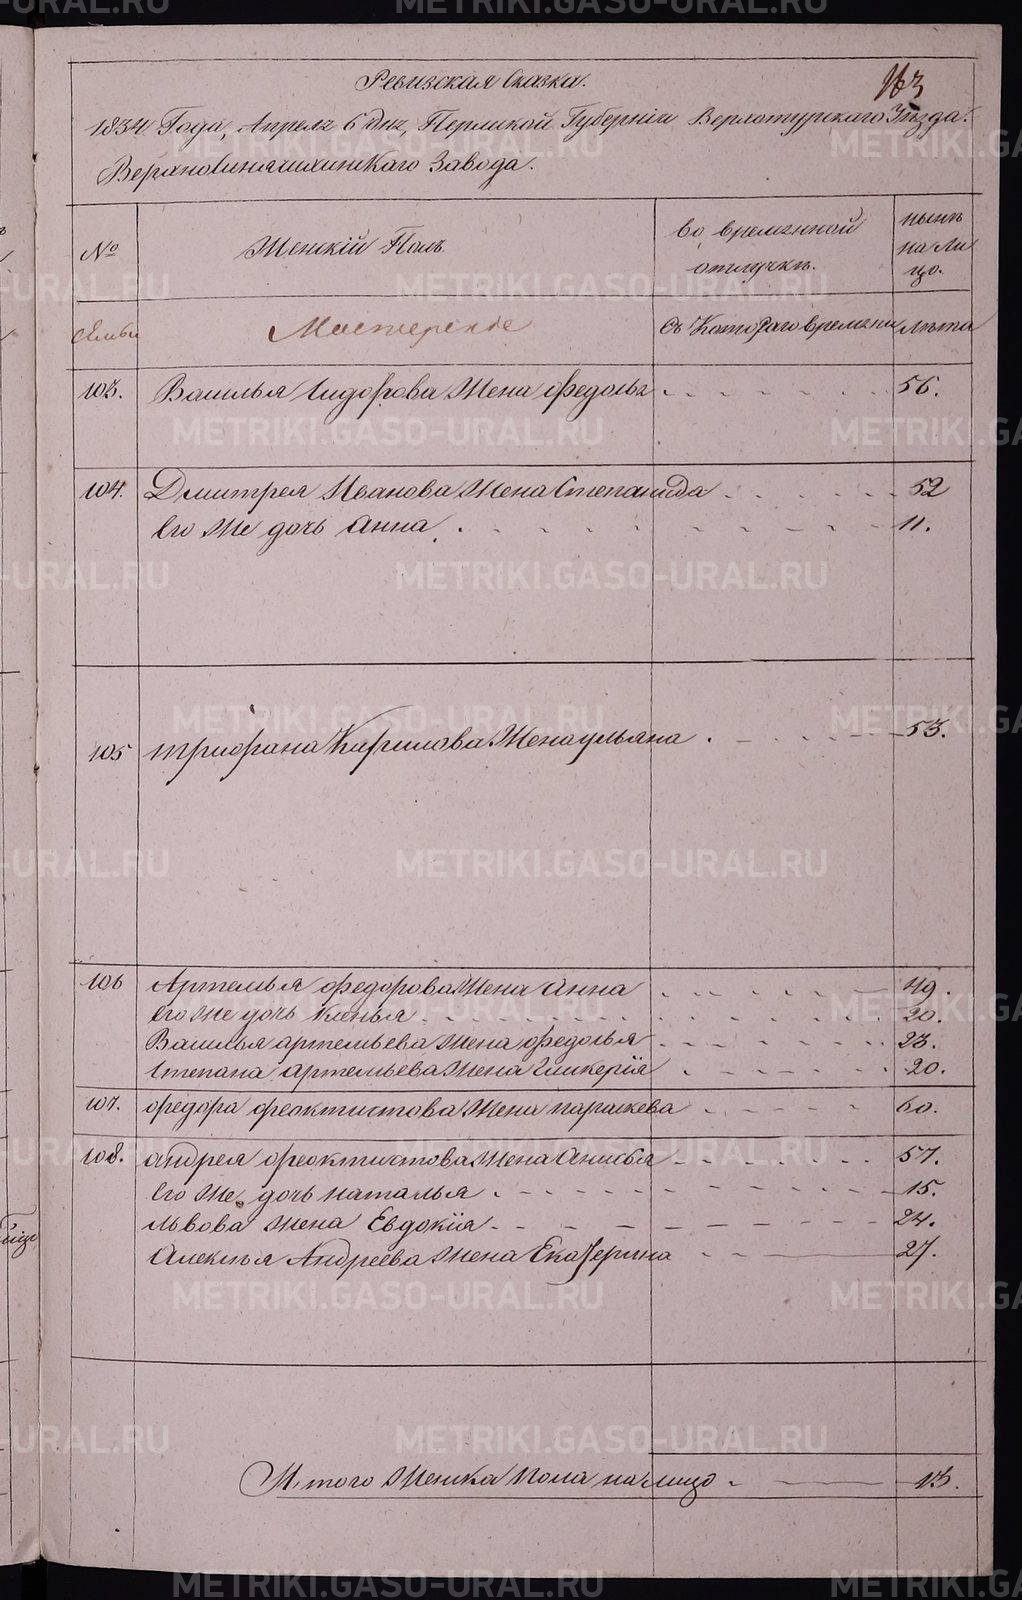 Ревизская Сказка.
163
1834 Года, Апреля 6 дня, Пермской Губернiи Верхотурскаго Уѣзда.
Верхнесинячихинскаго Завода.
№ Женскiй Полъ. во временной отлучкѣ. нынѣ на ли цо.
семьи Мастерскiе Съ Котораго времени лѣта
103. Василья Сидорова Жена федосья 56.
104. Дмитрея Иванова Жена Степанида 52
его же дочь Анна 11.
105 трифана Кирилова Жена ульяна 53.
106 Артемья федорова Жена Анна 49.
его же дочь 20.
Василья артемьева жена федосья 23.
Степана артемьева жена Гликерiя 20.
107. федора феоктистова Жена параскева 60.
108. андрея феоктистова Жена Анисья 57.
его же дочь наталья 15.
львова жена Евдокiя 24.
Алексея Андреева жена Екатерина 27.
И того женска пола на лицо 13.
METRIKI.GASO-URAL.RU